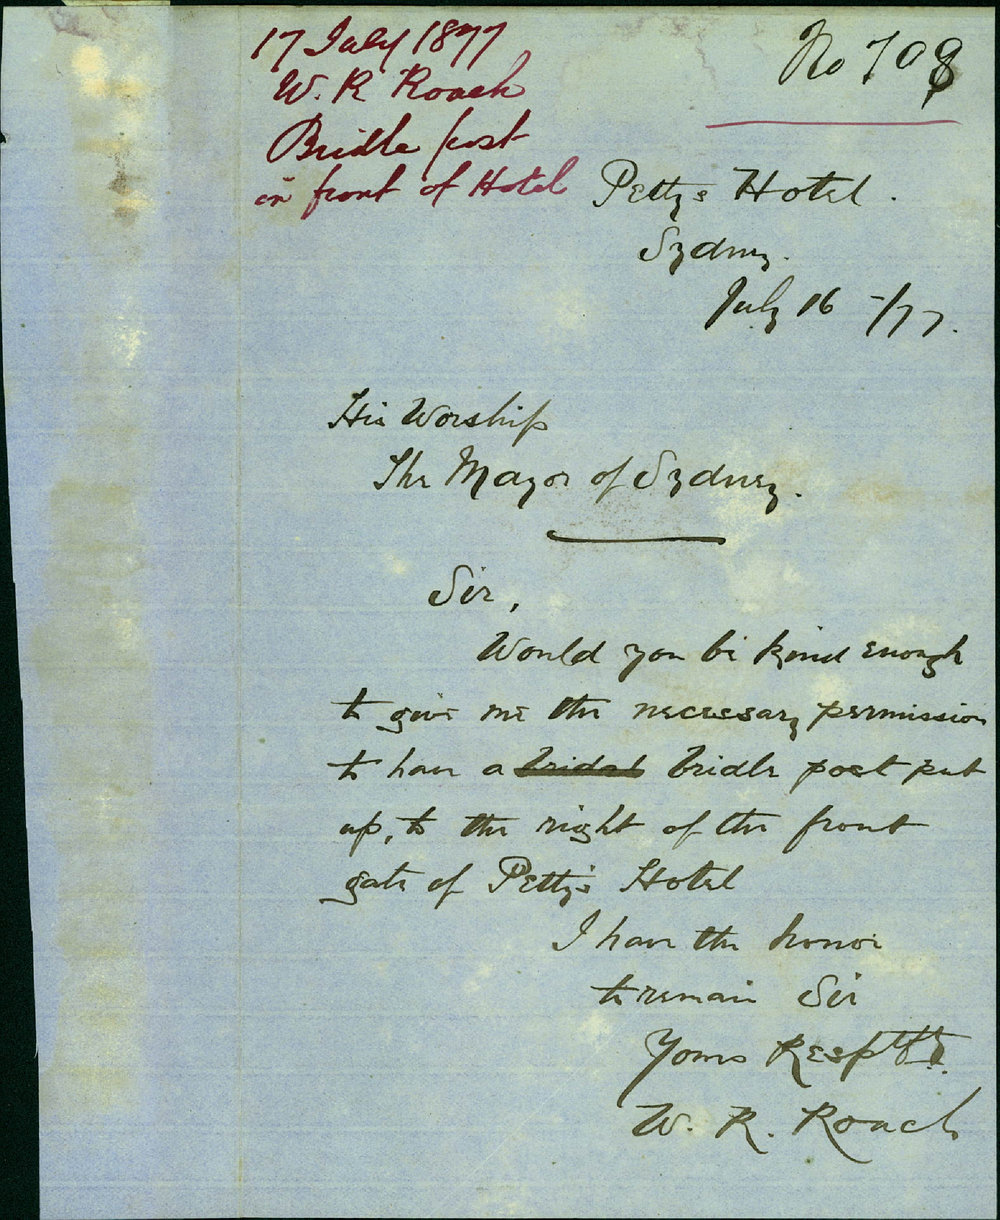 17 July 1877
W. R Roach
Bridle post
in front of Hotel
No 708
Pettys Hotel.
Sydney.
July 16 -/77.
His Worship
The Mayor of Sydney.
Sir,
Would you be kind enough
to give me the necessary permission
to have a bridal bridle post put
up, to the right of the front
gate of Petty's Hotel
I have the honor
to remain Sir
Yours Respttly.
W. R. Roach